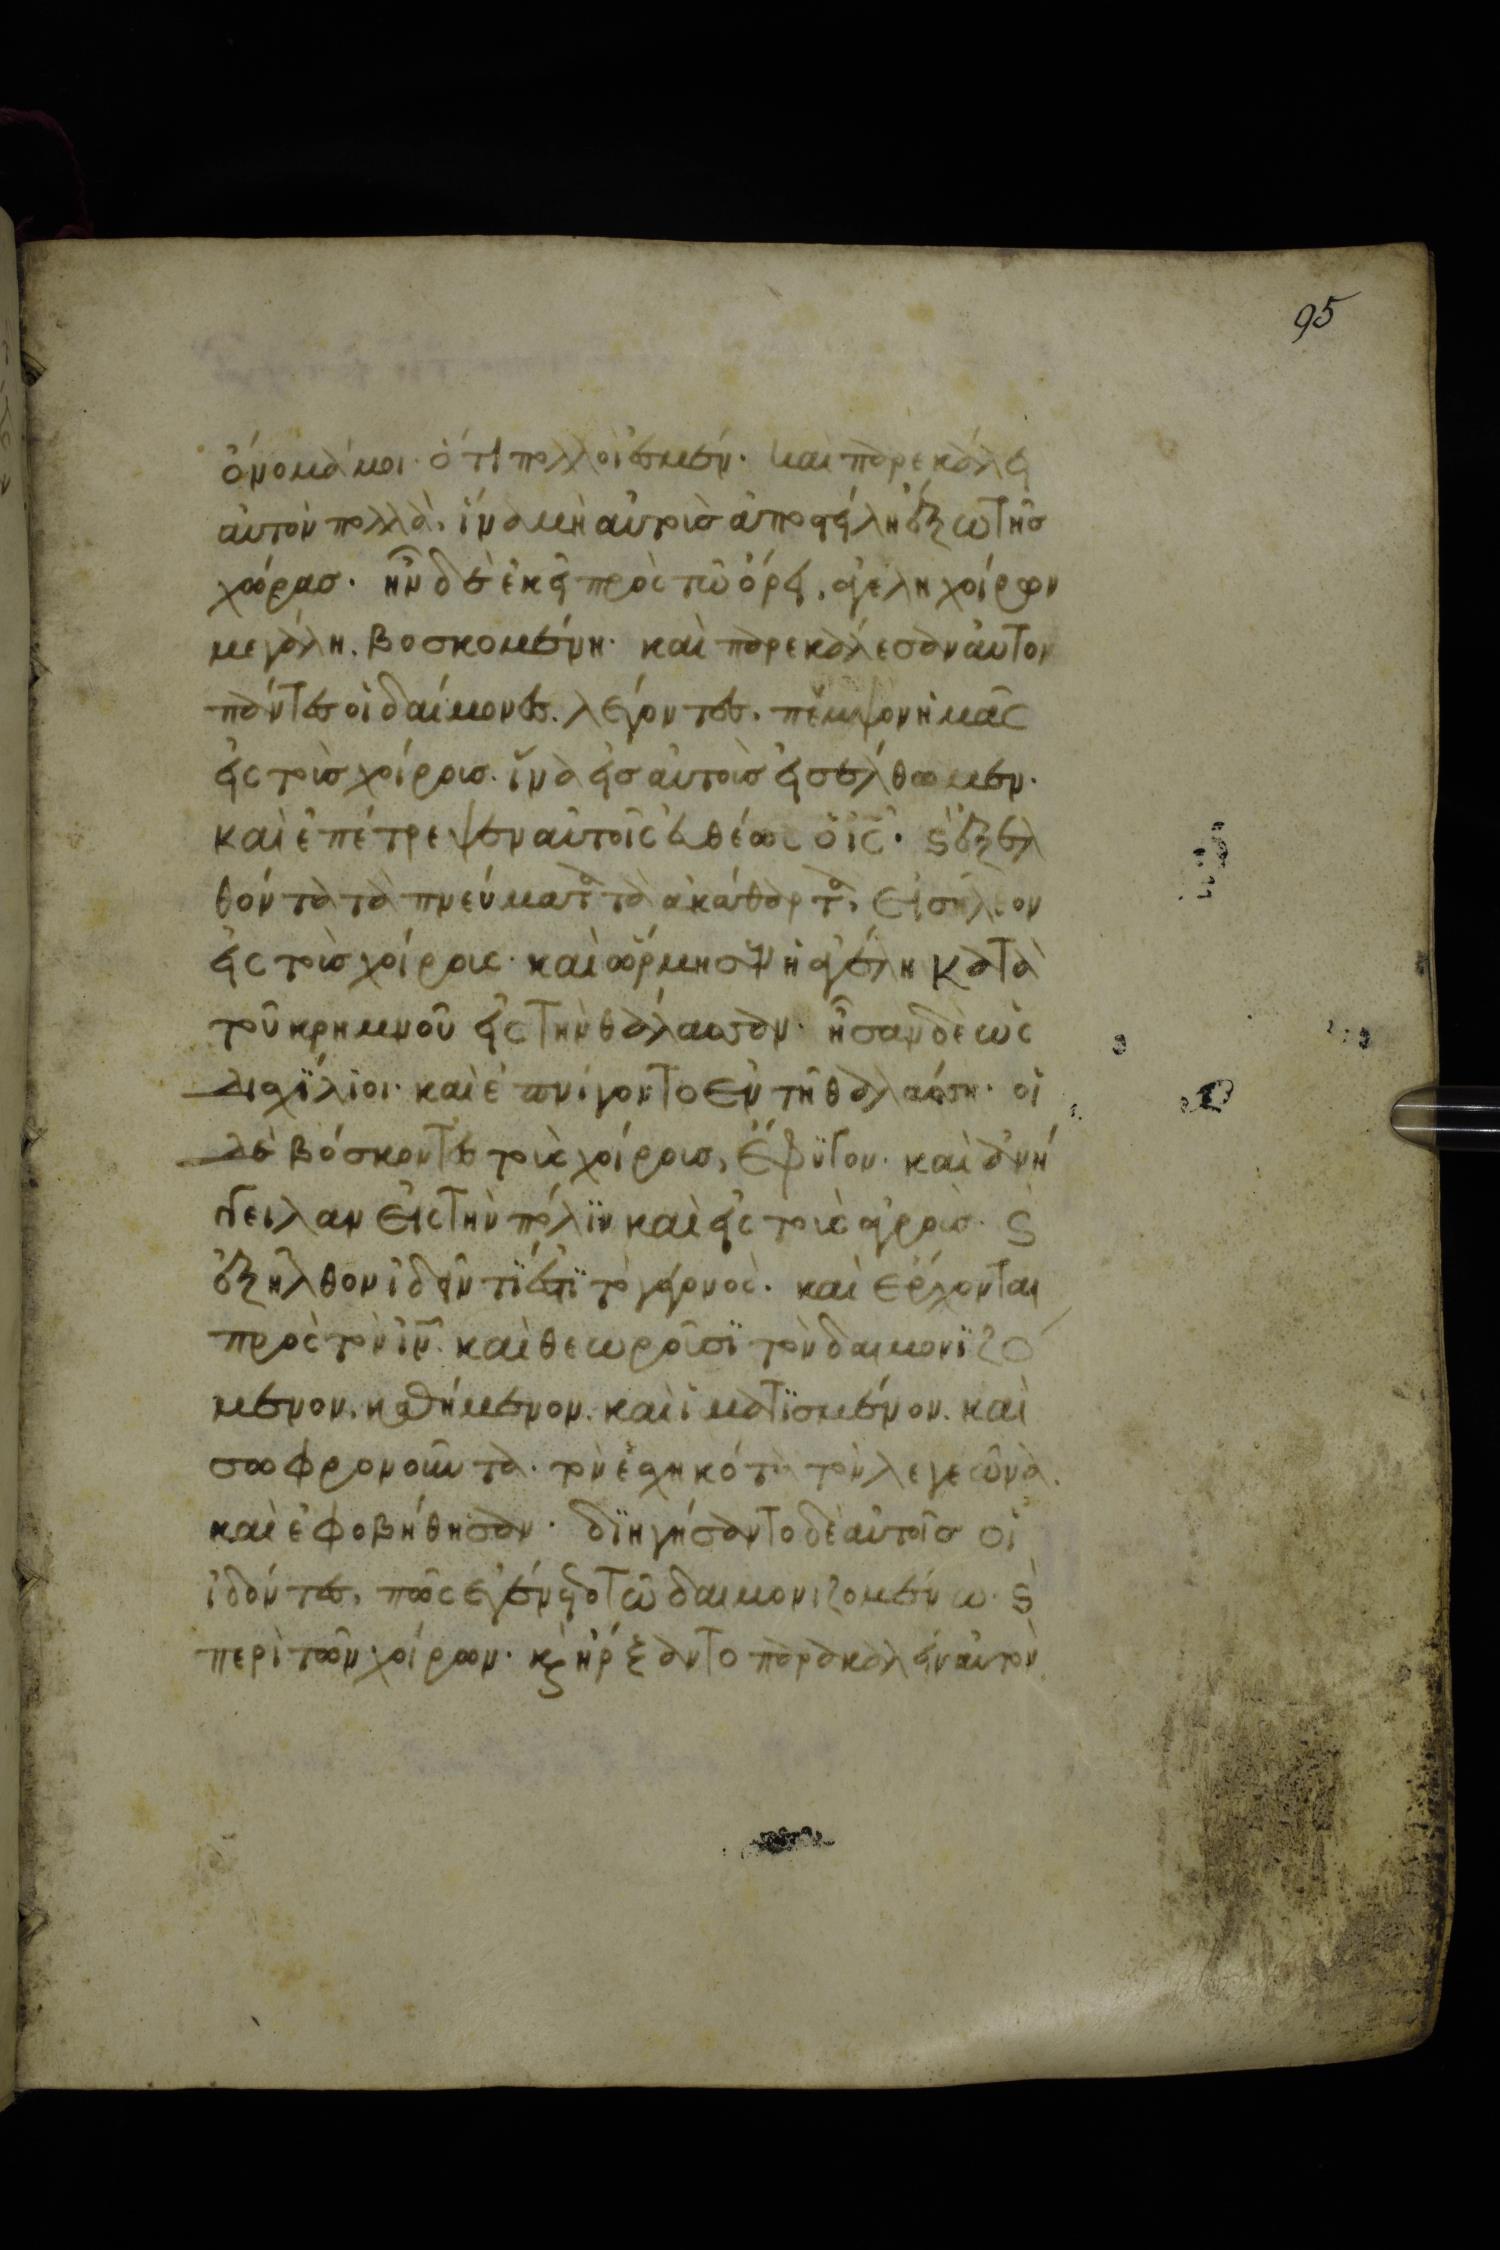 95
ὄνομά μοι· ὅτι πολλοί ἐσμεν· καὶ παρεκάλει
αὐτὸν πολλὰ, ἵνα μὴ αὐτοὺσ ἀποστείλη ἔξω τῆσ
χώρασ· ἦν δὲ ἐκεῖ πρὸς τῶ ὄρει, ἀγέλη χοίρων
μεγάλη, βοσκομένη· καὶ παρεκάλεσαν αὐτὸν
πάντες οἱ δαίμονες, λέγοντες, πέμψον ἡμᾶς
εἰς τοὺσ χοίρουσ· ἵνα εἰσ αὐτοὺσ εἰσέλθωμεν·
καὶ ἐπέτρεψεν αὐτοῖς εὐθέως ὁ ις· ϛ ἐξελ
θόντα τὰ πνεύματα τὰ ἀκάθαρτα, εἰσῆλθον
εἰς τοὺσ χοίρους· καὶ ὥρμησεν ἡ ἀγέλη κατὰ
τοῦ κρημνοῦ εἰς τὴν θάλασσαν· ἦσαν δὲ ὡς
δισχϊλιοι· καὶ ἐπνίγοντο ἐν τῆ θαλάσση· οἱ
δὲ βόσκοντες τοὺς χοίρουσ, ἔφϋγον· καὶ ἀνή
γγειλαν εἰς τὴν πόλϊν καὶ εἰς τοὺς ἀγρούσ· ϛ
ἐξῆλθον ἰδεῖν τϊ ἐστϊ τὸ γεγονὸς· καὶ ἔρχονται
πρὸς τὸν ιν· καὶ θεωροῦσϊ τὸν δαιμονϊζό
μενον, καθήμενον, καὶ ἱματϊσμένον, καὶ
σωφρονοῦντα· τὸν ἐσχηκότα τὸν λεγεῶνα,
καὶ ἐφοβήθησαν· δϊηγήσαντο δὲ αὐτοῖσ οἱ
ἰδόντες, πῶς ἐγένετο τῶ δαιμονιζομένω· ϛ
περὶ τῶν χοίρων· κ ἤρξαντο παρακαλεῖν αὐτὸν